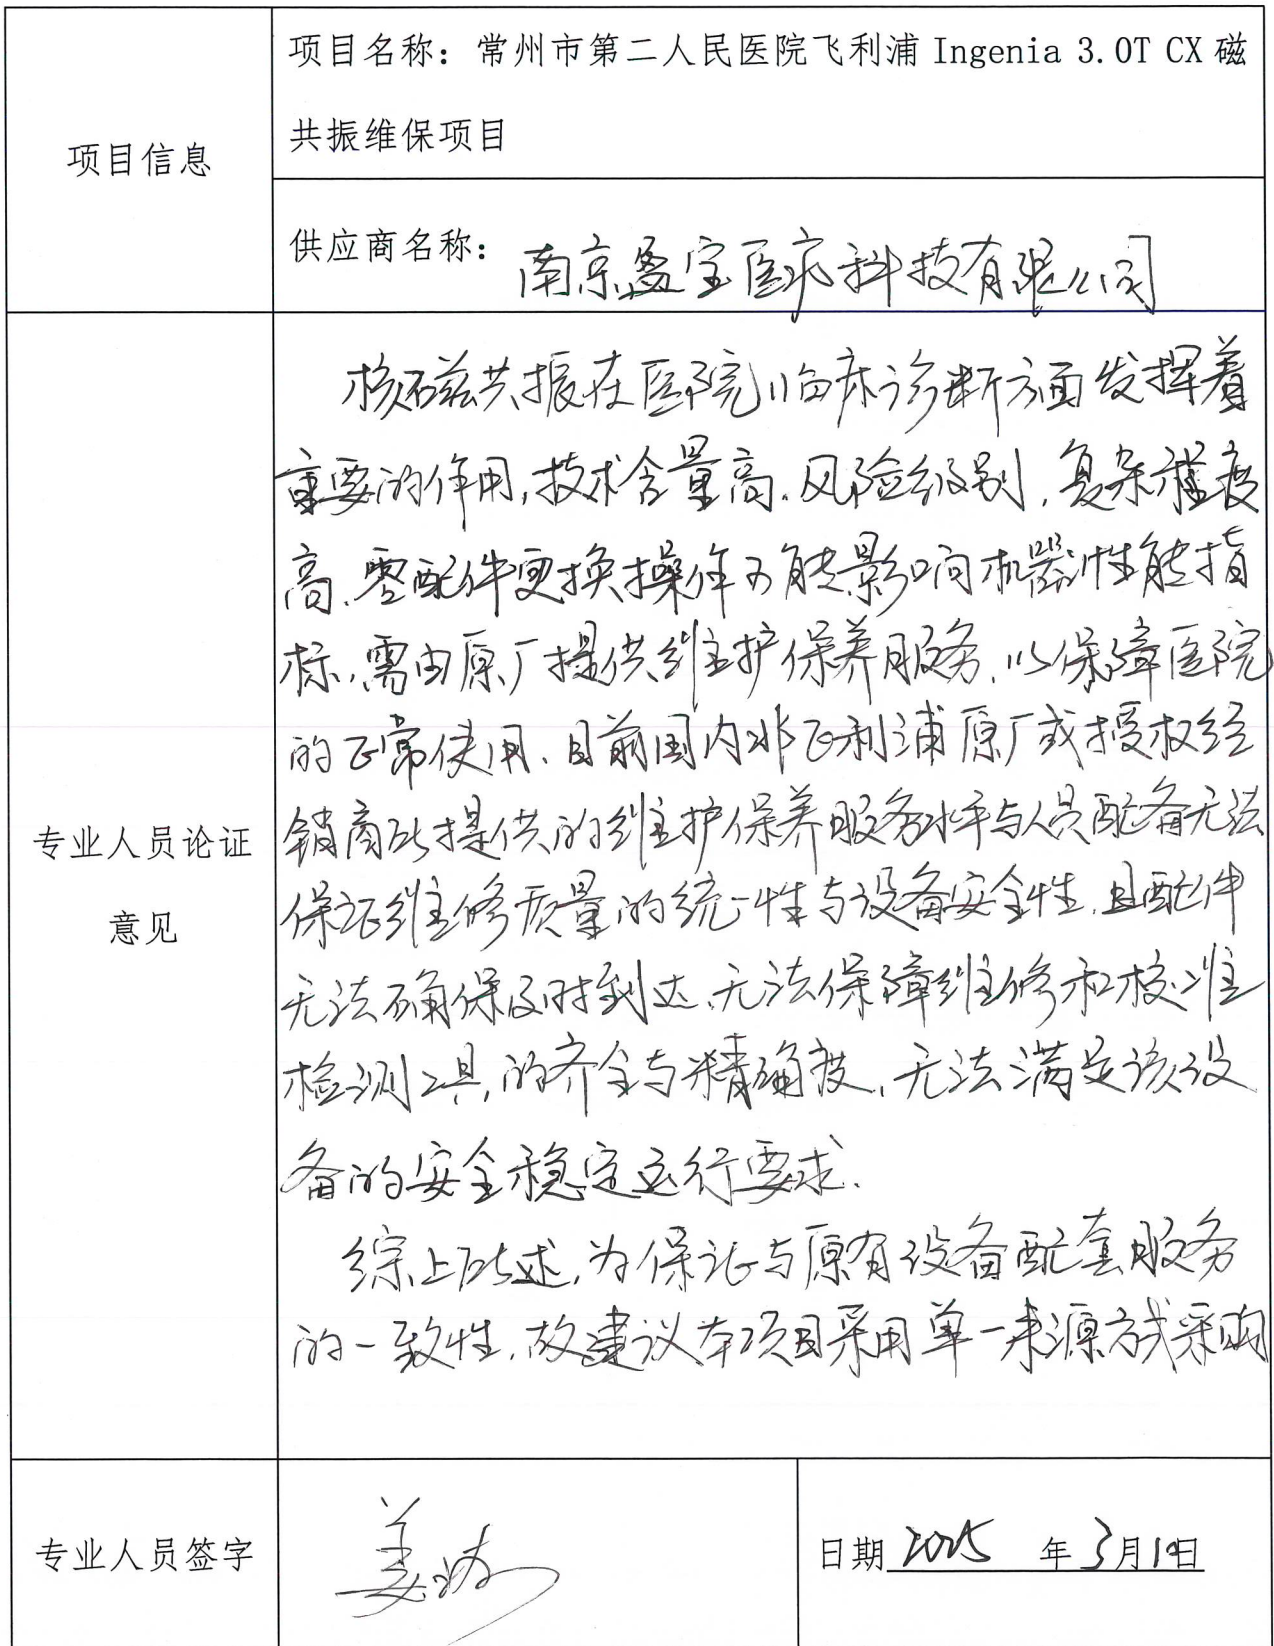 项目信息
项目名称：常州市第二人民医院飞利浦 Ingenia 3.0T CX 磁
共振维保项目
供应商名称：南京盈宝医疗科技有限公司
专业人员论证
意见
核磁共振在医院临床诊断方面发挥着
重要的作用,技术含量高.风险级别,复杂程度
高.零配件更换操作可能影响机器性能指
标,需由原厂提供维护保养服务.以保障医院
的正常使用.目前国内非飞利浦原厂或授权经
销商所提供的维护保养服务水平与人员配备无法
保证维修质量的统一性与设备安全性.且配件
无法确保及时到达.无法保障维修和校准
检测工具的齐全与精确度,无法满足该设
备的安全稳定运行要求.
综上所述,为保证与原有设备配套服务
的一致性,故建议本项目采用单一来源方式采购
专业人员签字
姜
日期 2025 年 3月 日